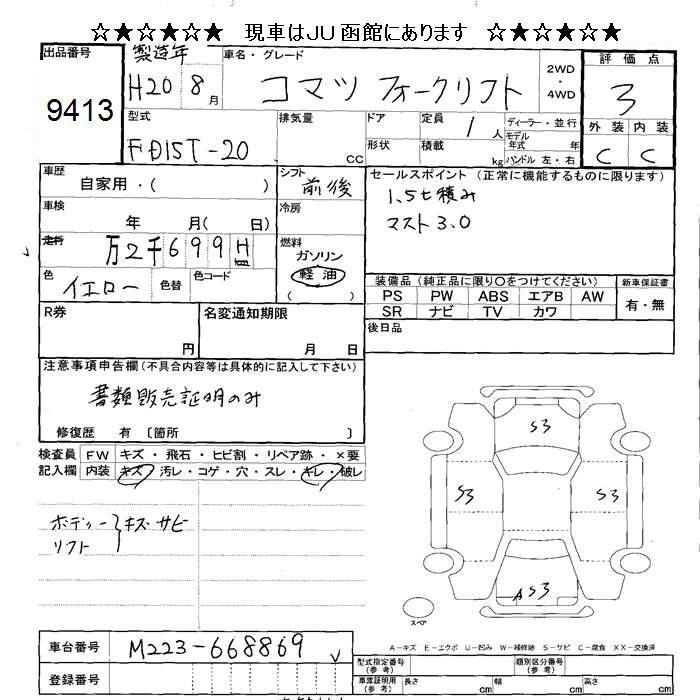 ☆★☆★☆★ 現車はJU函館にあります ☆★☆★☆★
出品番号 9413
製造年 H20 8月
車名・グレード コマツ フォークリフト
2WD・4WD
評価点 3
外装 内装
C C
型式 FD15T-20
排気量 cc
ドア
形状
定員 1人
積載 kg
ディーラー・並行
モデル年式 年
ハンドル 左・右
車歴 自家用・( )
シフト 前後
セールスポイント (正常に機能するものに限ります)
1.5t積み
マスト3.0
車検 年 月( 日)
冷房
走行 万2千699H
燃料 ガソリン
軽油
( )
色 イエロー 色替 色コード
装備品 (純正品に限り○をつけてください)
PS PW ABS エアB AW
SR ナビ TV カワ
新車保証書
有・無
R券 円
名変通知期限 月 日
後日品
注意事項申告欄 (不具合内容等は具体的に記入して下さい)
書類販売証明のみ
修復歴 有 〔箇所 〕
検査員記入欄
FW キズ・飛石・ヒビ割・リペア跡・×要
内装 キズ・汚レ・コゲ・穴・スレ・キレ・破レ
ボディー
リフト
キズ サビ
S3
S3
S3
AS3
スペア
A-キズ E-エクボ U-凹み W-補修跡 S-サビ C-腐食 XX-交換済
車台番号 M223-668869
登録番号
型式指定番号 (参考)
類別区分番号 (参考)
車庫証明用 (参考) 長さ cm 幅 cm 高さ cm